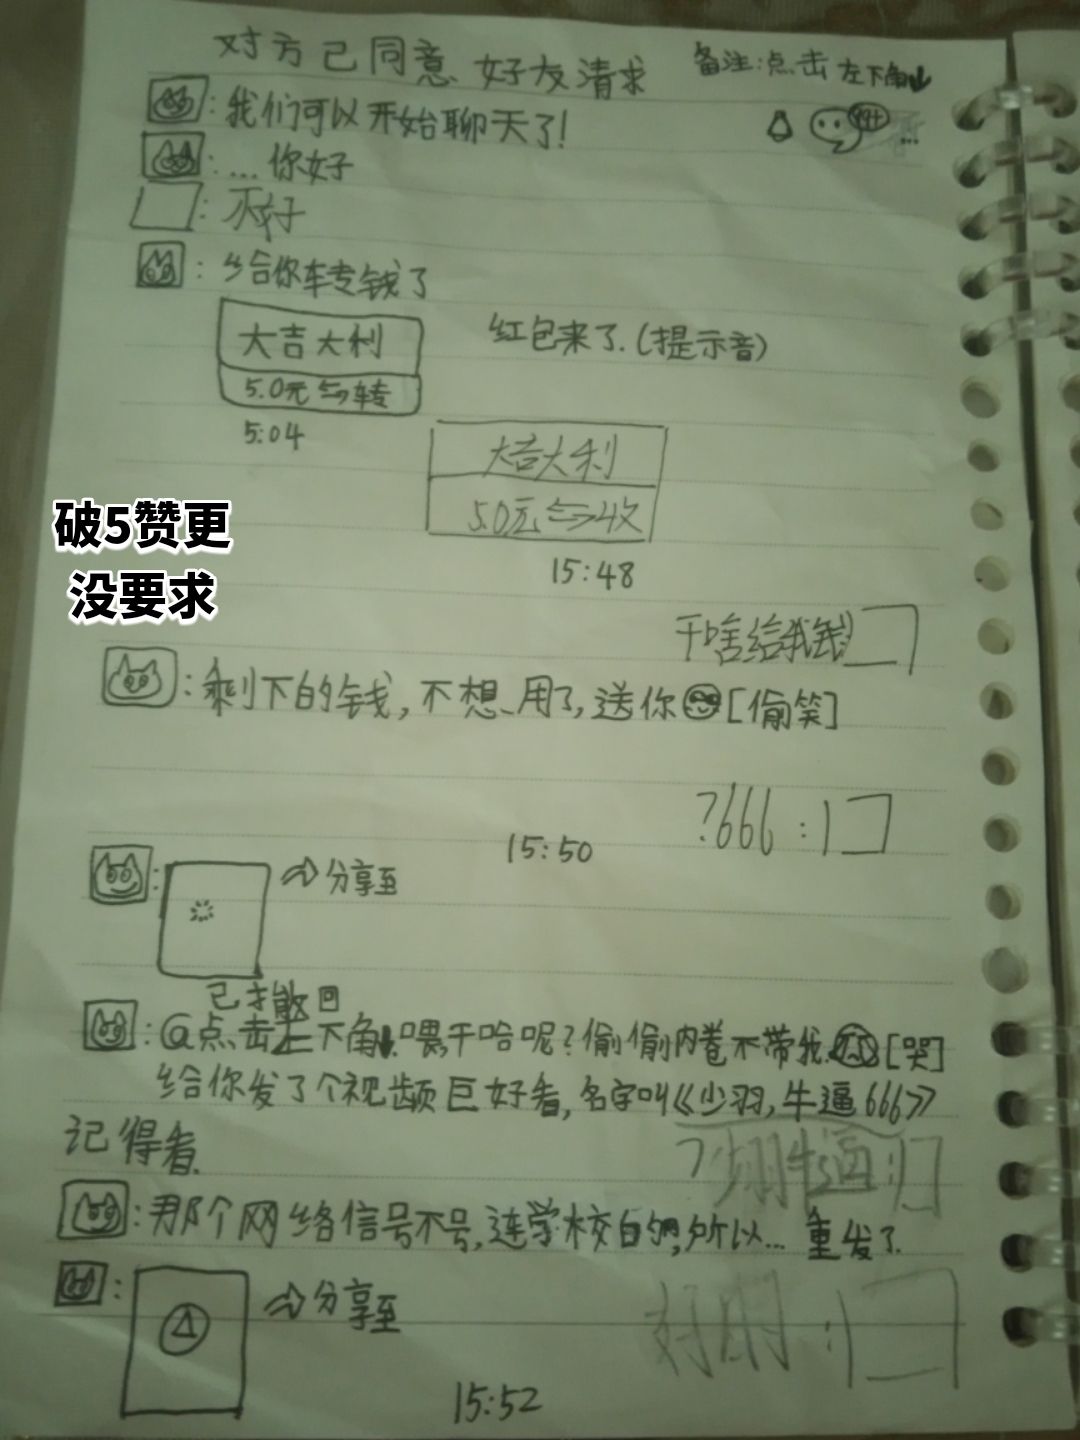 对方已同意好友请求
备注:点击左下角↓
:我们可以开始聊天了!
99+
...
:...你好
:不好
:给你转钱了
大吉大利
红包来了.(提示音)
5.0元⇆转
5:04
大吉大利
5.0元⇆收
15:48
破5赞更
没要求
干啥给我钱
:剩下的钱,不想用了,送你[偷笑]
?666:
15:50
:
分享至
已撤回
:@点击左下角↓.喂干哈呢?偷偷内卷不带我[哭]
给你发了个视频巨好看,名字叫《少羽,牛逼666》
记得看.
?少羽牛逼:
:那个网络信号不号,连学校的,所以... 重发了.
:
分享至
15:52